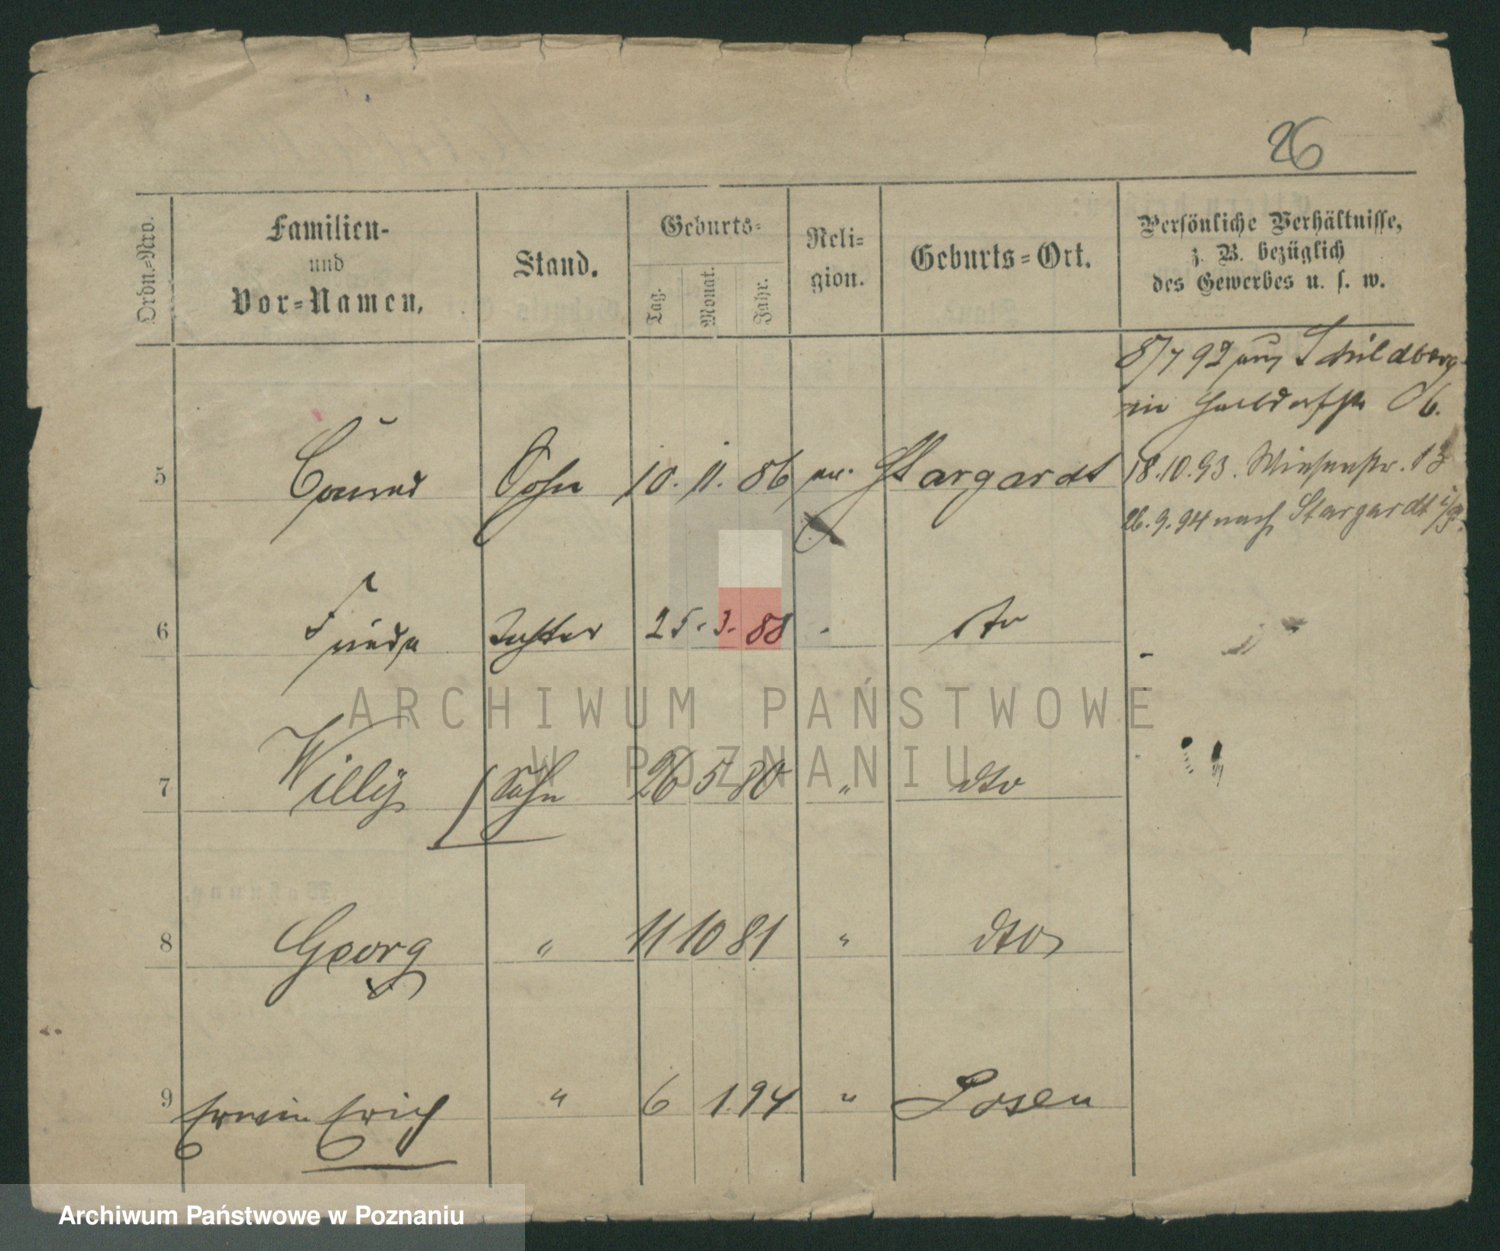 26
Ordn.-Nro.
Familien-
und
Vor-Namen.
Stand.
Geburts-
Tag.
Monat.
Jahr.
Reli-
gion.
Geburts-Ort.
Persönliche Verhältnisse,
z. B. bezüglich
des Gewerbes u. s. w.
8/7 92 aus Schildberg
in 6.
5 Conrad Sohn 10. 11. 86 ev. Stargardt 18.10.93. Wiesenstr. 13
26.9.94 nach Stargardt i/P.
6 Frieda Tochter 25. 3. 88 dto
7 Willy Sohn 26 5 80 " dto
8 Georg " 11 10 81 " dto
9 Erwin Erich " 6 1. 94 " Posen
ARCHIWUM PAŃSTWOWE
W POZNANIU
Archiwum Państwowe w Poznaniu